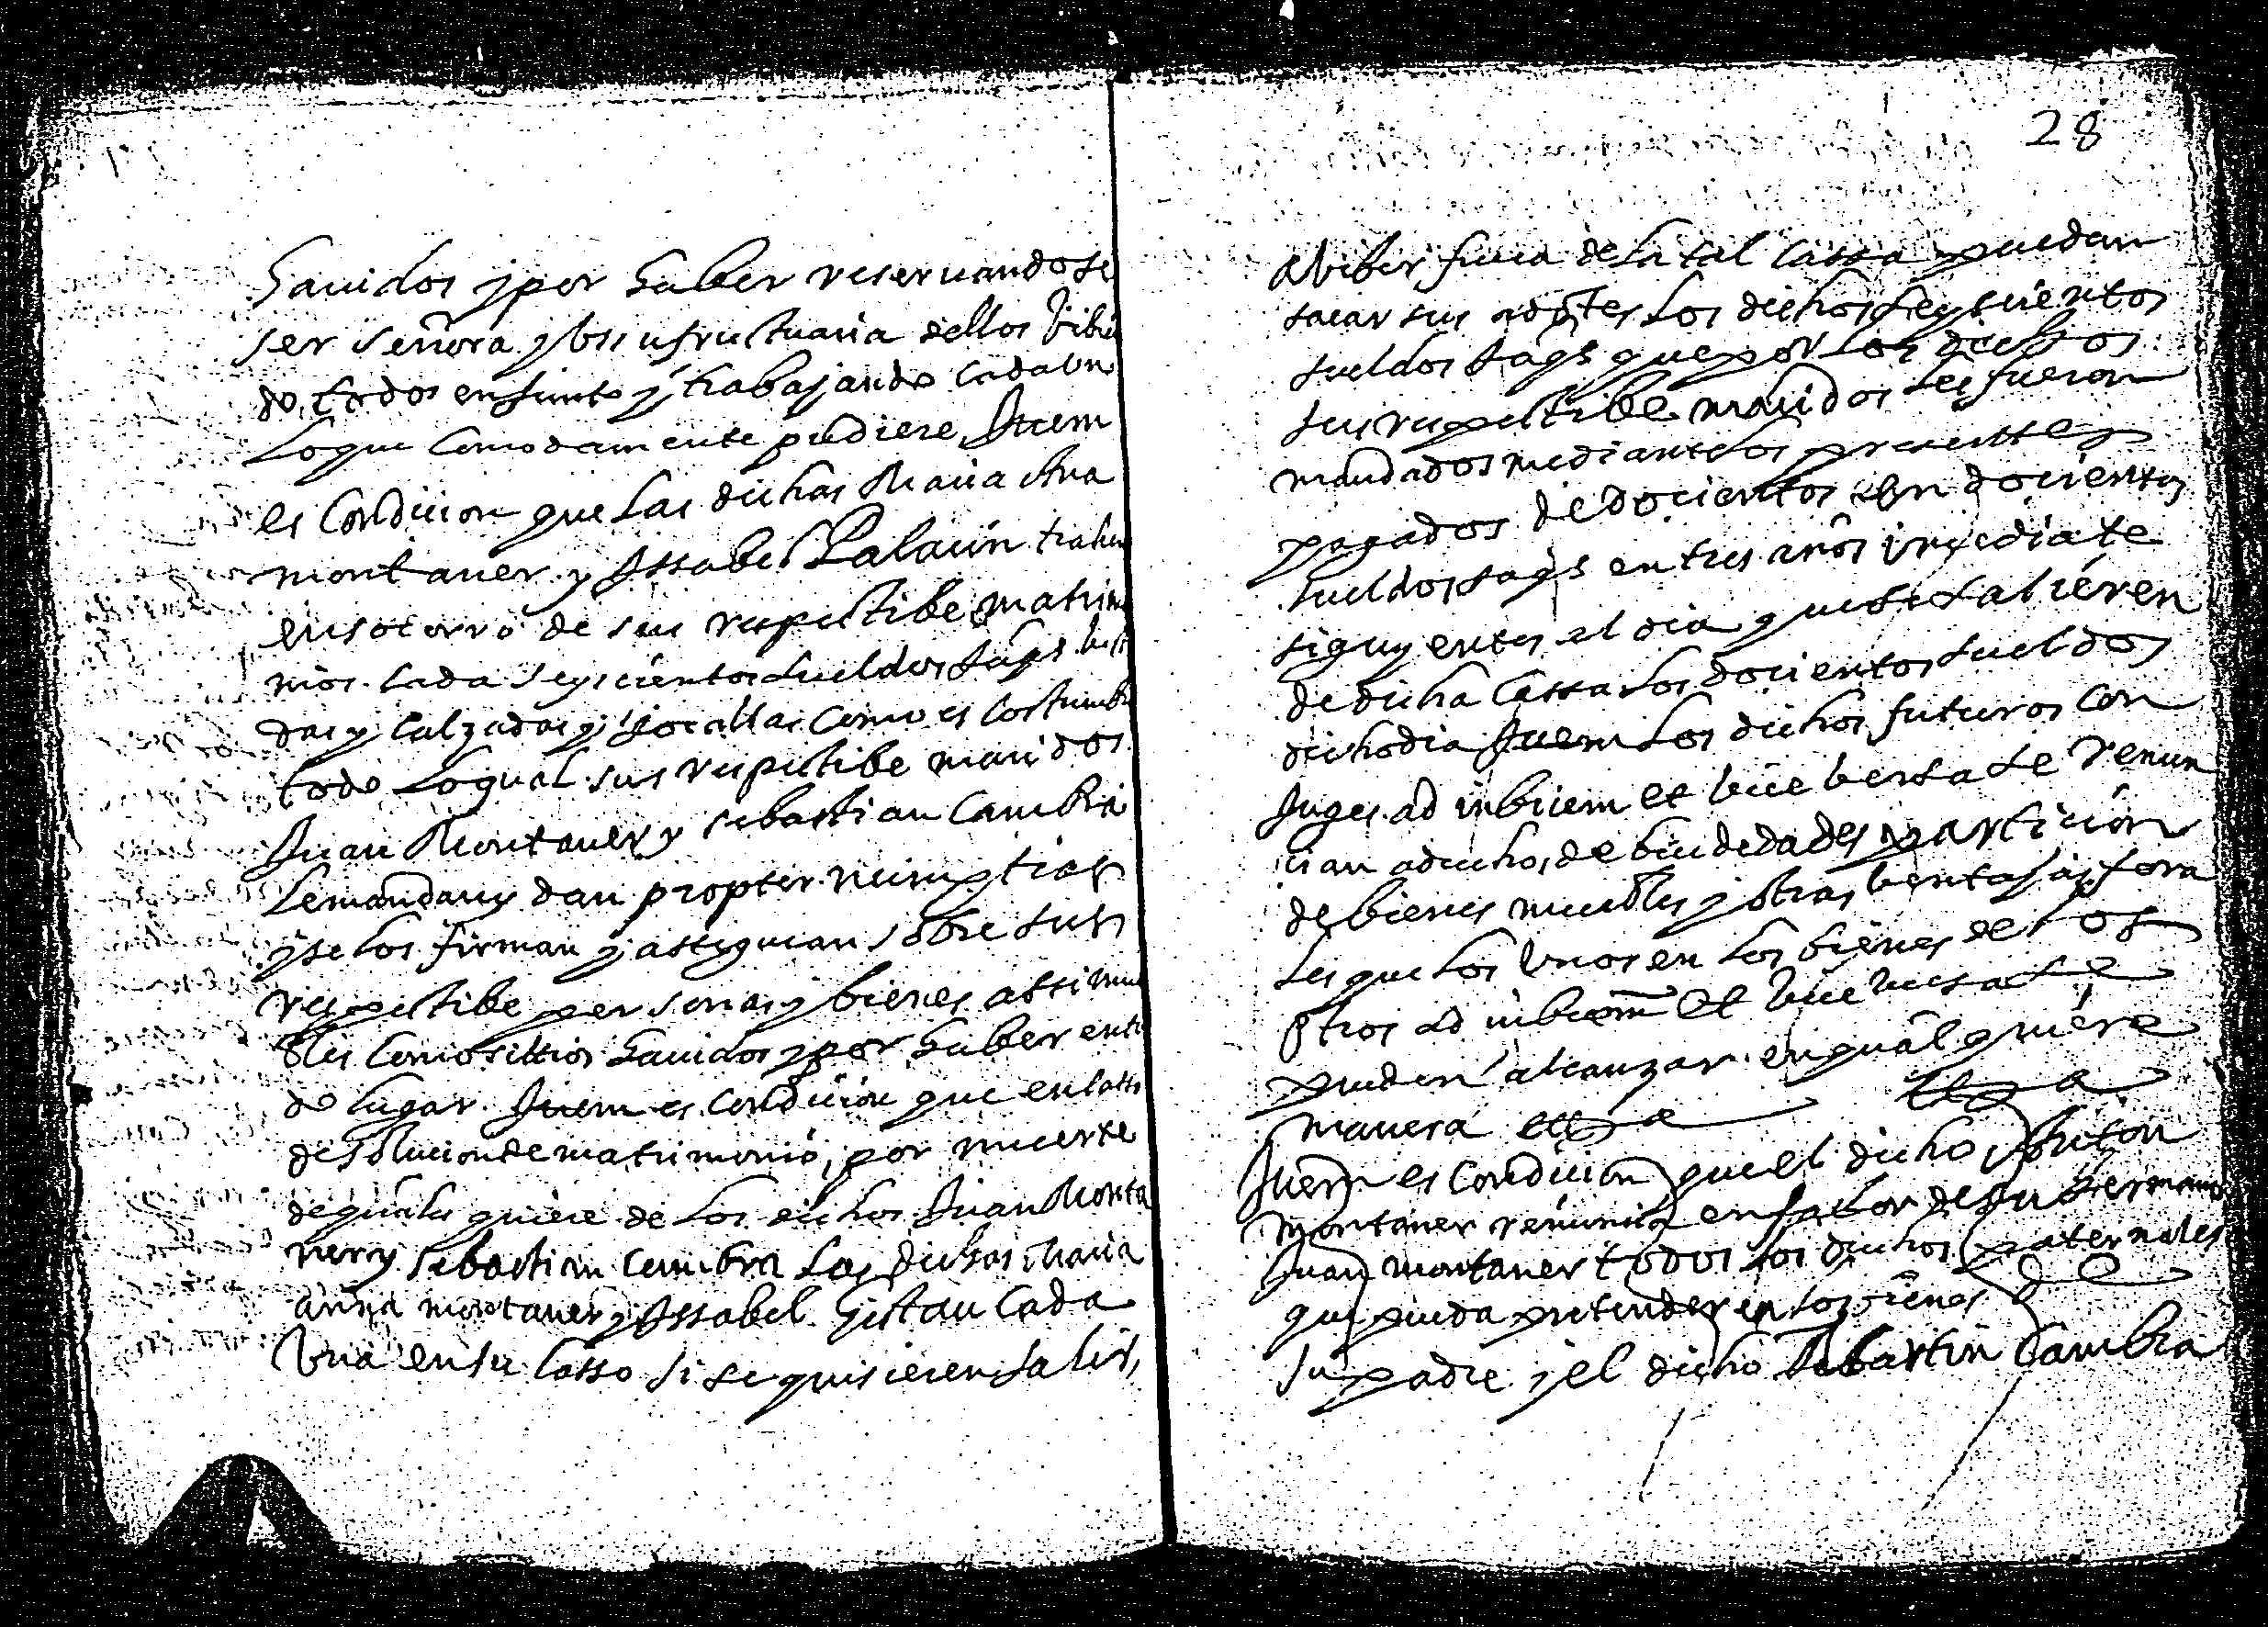 hauidos y por haber reseruandose
ser señora y vssufructuaria dellos bibi
do todos enjunto y trabajando cada un
lo que comodamente pudiere Ittem
es Condicion que las dichas Maria Ana
montaner y Issabel Palacin trahen
en socorro de sus respectibe matrim
nios cada seyscientos sueldos Jaqs besti
das y calzadas y jocallas como es costumbr
todo lo qual sus respectibe maridos
Juan Montaner y sebastian Cambra
le mandan y dan propter numptias
y se los firman y asseguran sobre sus
respectibe personas y bienes assi mue
bles como sittios hauidos y por haber ente
do lugar. Ittem es condicion que en casso
desolucion de matrimonio, por muerte
de quales quiere de los dichos Juan Monta
ner y sebastian cambra las dichas maria
anna montaner y Issabel Gistau cada
vna en su casso si se quisieren salir,
28
a bibir fuera de la tal cassa puedan
sacar sus adotes los dichos seyscientos
sueldos Jaqs que por los dichos
sus respectibe maridos les fueron
mandados mediante los presentes
pagados de docientos en docientos
sueldos Jaqs en tres años imediate
siguyentes el dia que se salieren
de dicha cassa los docientos sueldos
dicho dia Ittem los dichos futuros con
Juges ad inbicem et bice bersa se renun
cian a dichos, de biudedades particion
de bienes muebles y otras bentajas fora
les que los vnos en los bienes de los
otros ad inbicem et bice bersa se
pueden alcanzar en qualquiere
manera etta
Ittem es Condicion que el dicho Anton
Montaner renuncia en fabor de su hermano
Juan montaner todos los dichos paternales
que pueda pretender en los bienes de
su padre y el dicho Sebastin Cambra